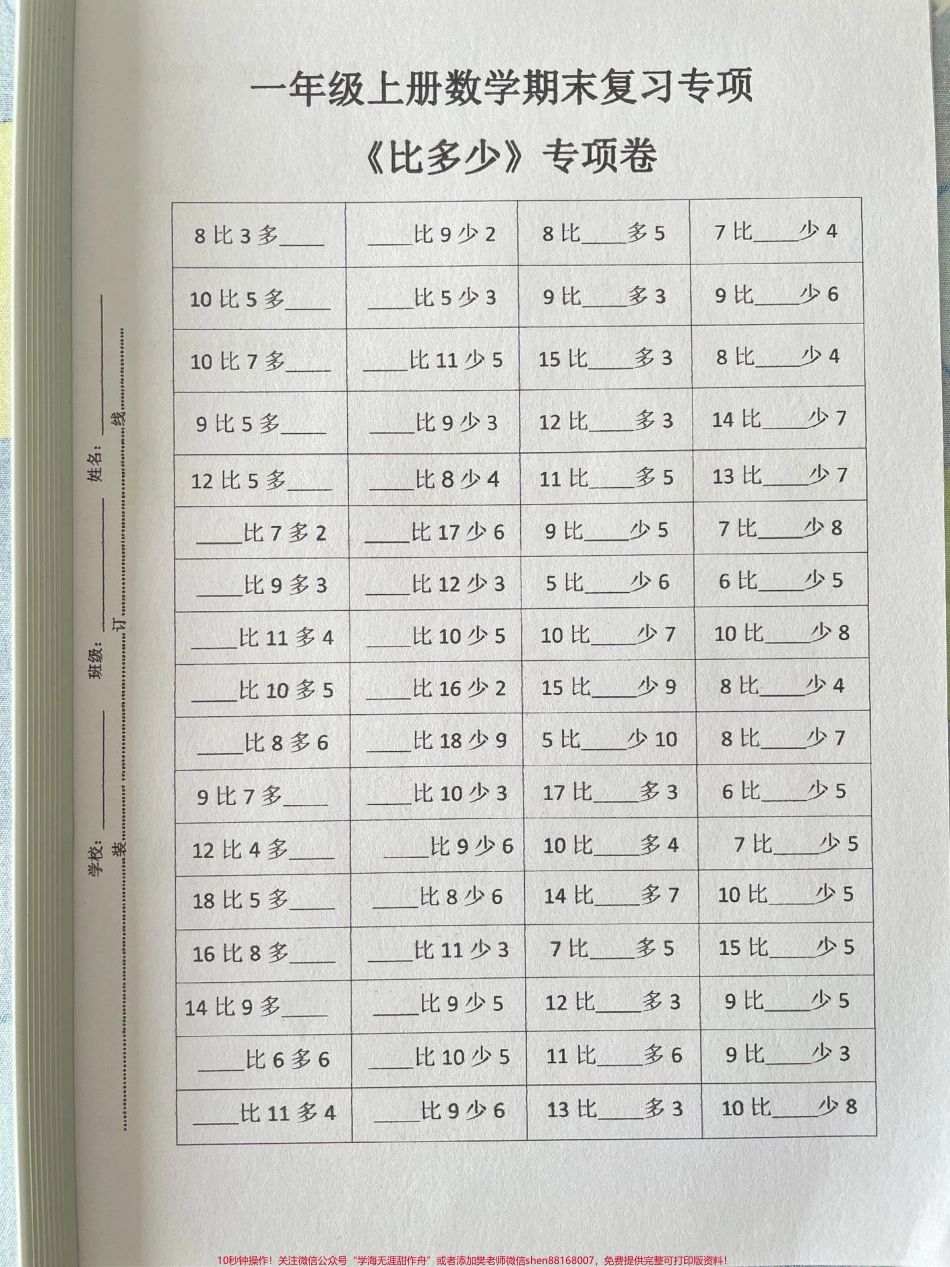 一年级上册数学期末复习专项
《比多少》专项卷
8 比 3 多____ ____比 9 少 2 8 比____多 5 7 比____少 4
10 比 5 多____ ____比 5 少 3 9 比____多 3 9 比____少 6
10 比 7 多____ ____比 11 少 5 15 比____多 3 8 比____少 4
9 比 5 多____ ____比 9 少 3 12 比____多 3 14 比____少 7
12 比 5 多____ ____比 8 少 4 11 比____多 5 13 比____少 7
____比 7 多 2 ____比 17 少 6 9 比____少 5 7 比____少 8
____比 9 多 3 ____比 12 少 3 5 比____少 6 6 比____少 5
____比 11 多 4 ____比 10 少 5 10 比____少 7 10 比____少 8
____比 10 多 5 ____比 16 少 2 15 比____少 9 8 比____少 4
____比 8 多 6 ____比 18 少 9 5 比____少 10 8 比____少 7
9 比 7 多____ ____比 10 少 3 17 比____多 3 6 比____少 5
12 比 4 多____ ____比 9 少 6 10 比____多 4 7 比____少 5
18 比 5 多____ ____比 8 少 6 14 比____多 7 10 比____少 5
16 比 8 多____ ____比 11 少 3 7 比____多 5 15 比____少 5
14 比 9 多____ ____比 9 少 5 12 比____多 3 9 比____少 5
____比 6 多 6 ____比 10 少 5 11 比____多 6 9 比____少 3
____比 11 多 4 ____比 9 少 6 13 比____多 3 10 比____少 8
学校：________ 班级：________ 姓名：________
装 订 线
10秒钟操作！关注微信公众号“学海无涯甜作舟”或者添加樊老师微信shen88168007，免费提供完整可打印版资料！